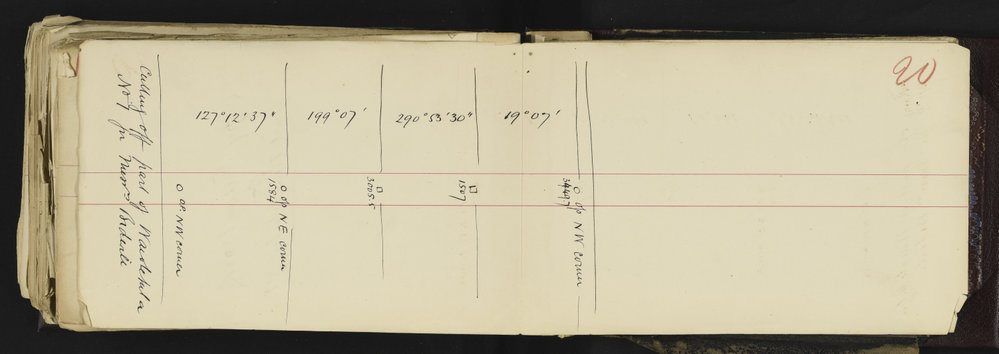 20
Cutting off part of
No 1 for Messrs
127°12'37"
0 op. NW corner
199°07'
0 op NE corner
1584
290°53'30"
3005.5
19°07'
1507
0 op NW corner